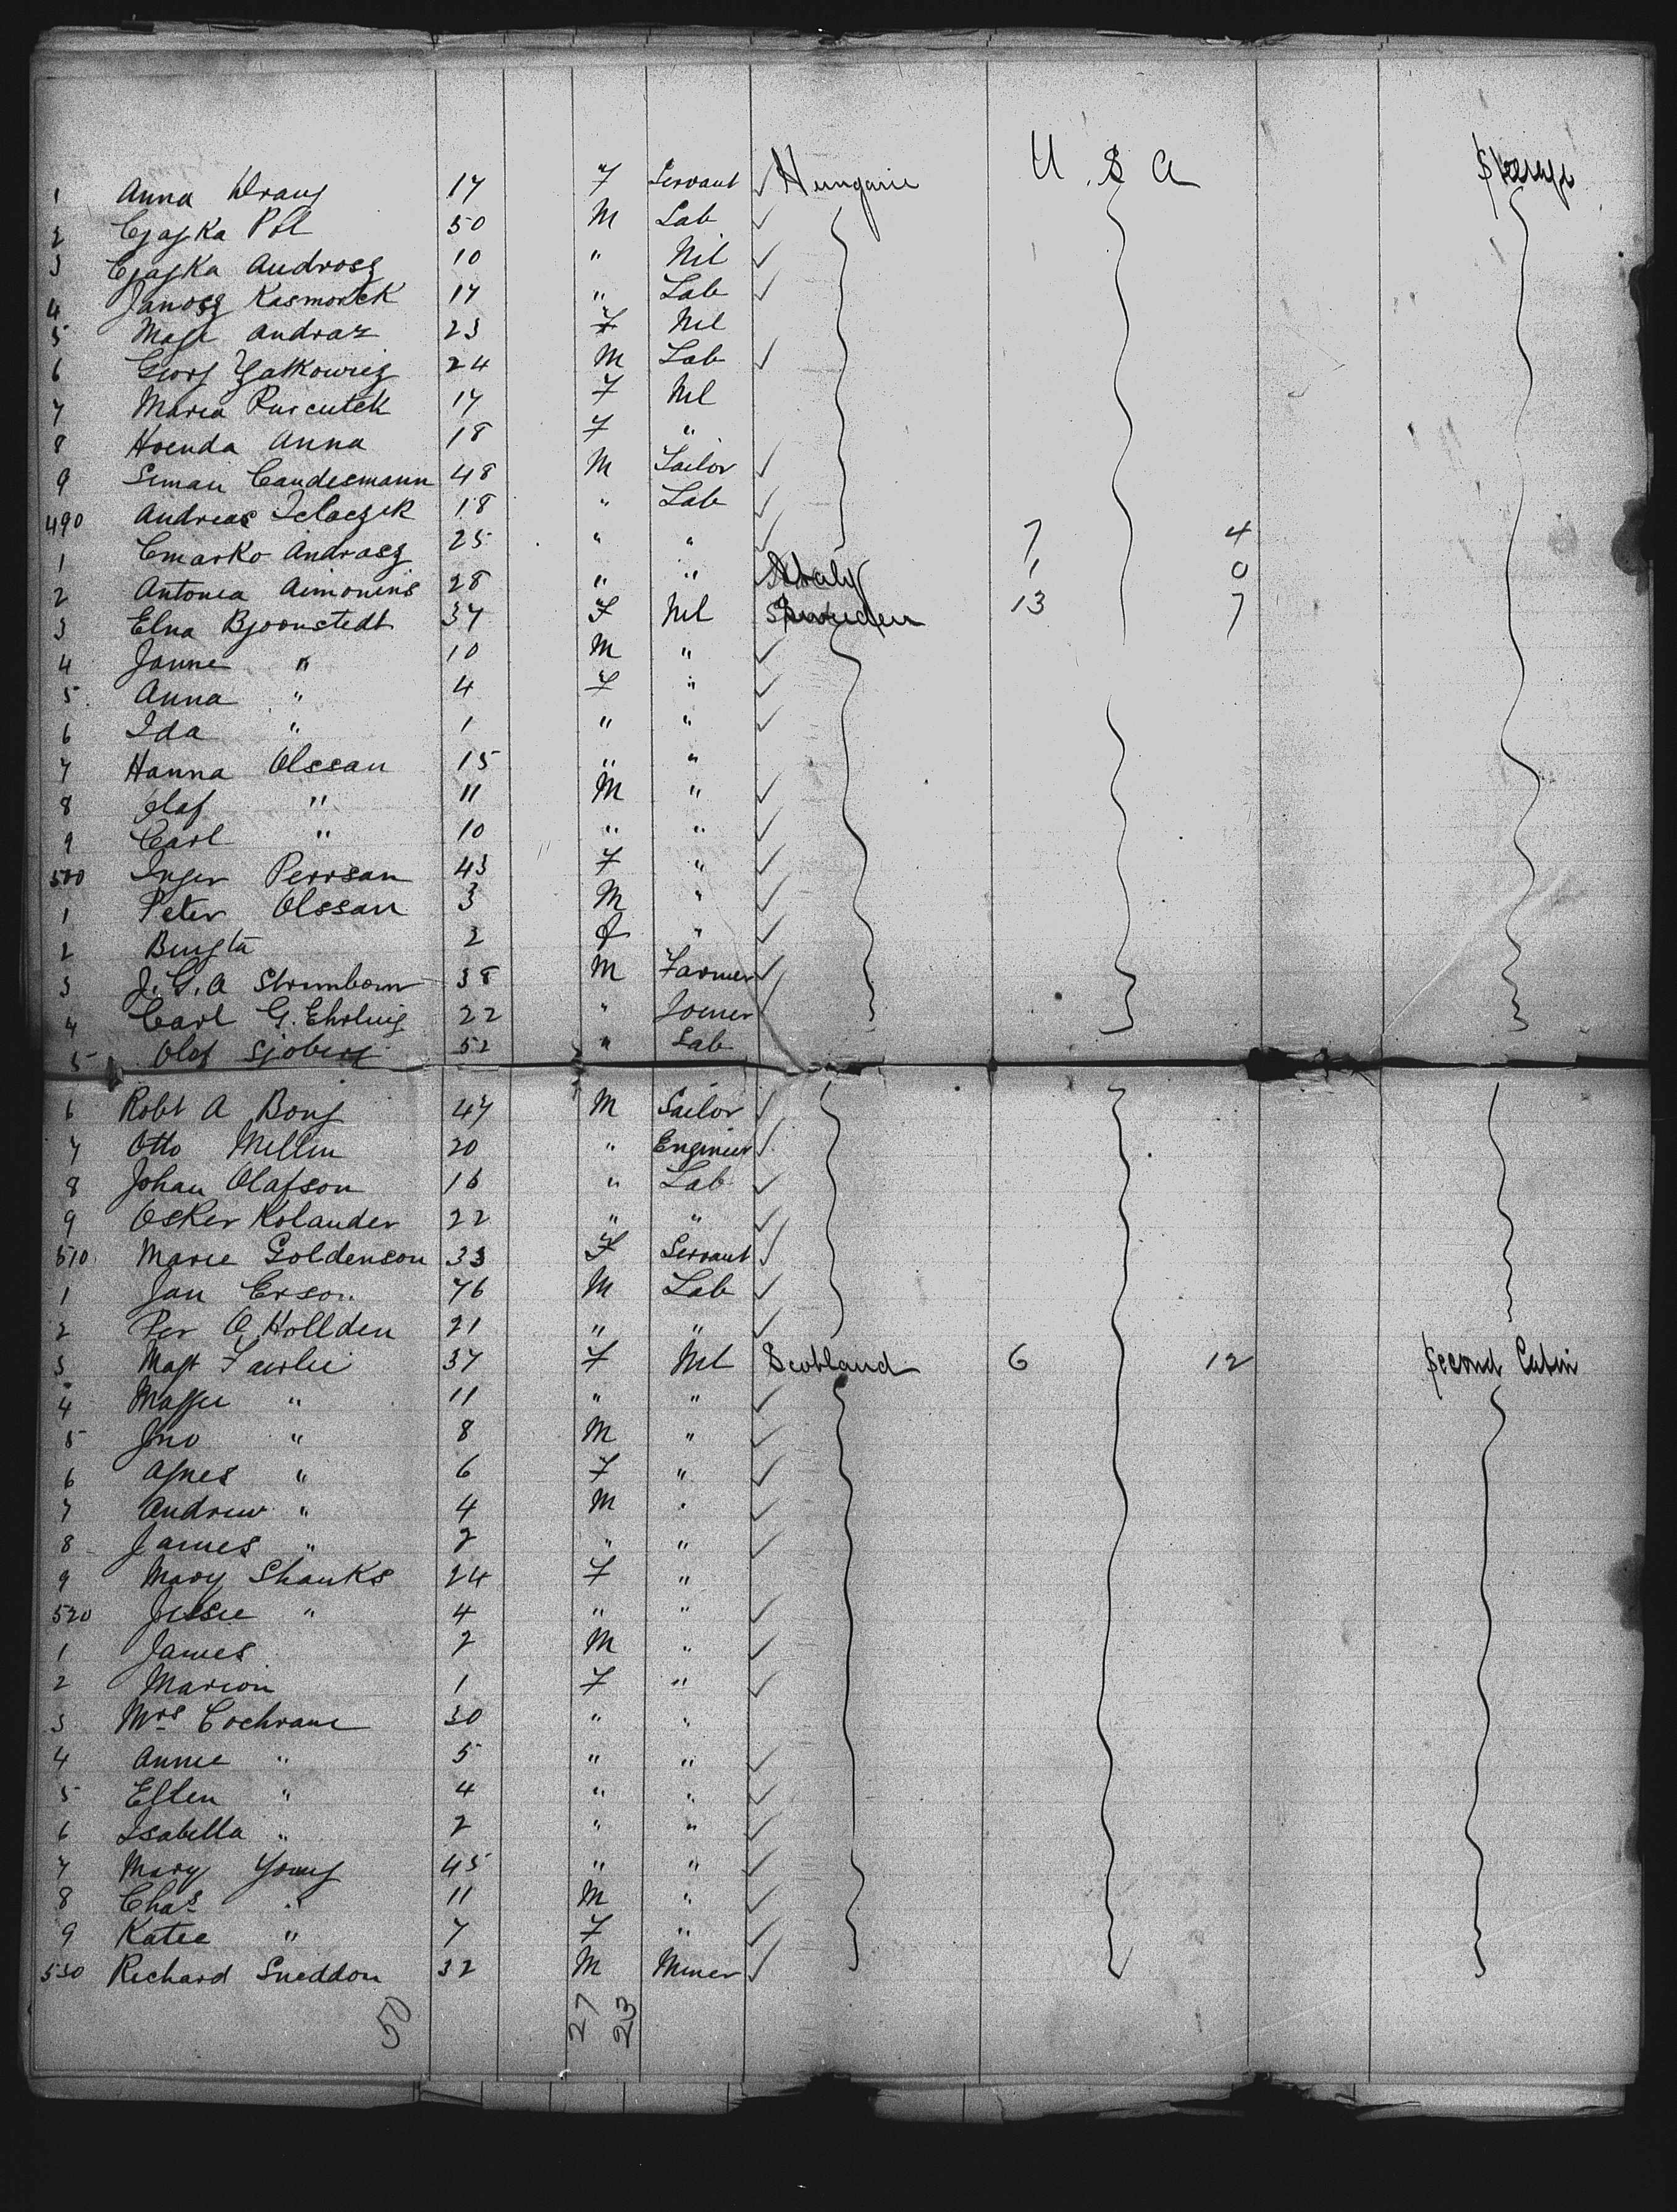 U. S. A
1 Anna 17 F Servant ✓ Hungarie Steerage
2 Czajka Pol 50 M Lab ✓
3 Czajka Androsz 10 " Nil ✓
4 Janosz Kasmorek 17 " Lab ✓
5 Mage Andraz 23 F Nil
6 Georg Zatkowicz 24 M Lab ✓
7 Maria Puscutek 17 F Nil
8 Hrenda Anna 18 F "
9 Siman Candesmann 48 M Tailor ✓
490 Andreas Telaczek 18 " Lab ✓
1 Cmarko Andrasz 25 " " ✓ 7 4
2 Antonia Aimonins 28 " " ✓ Italy 1 0
3 Elna Bjoonstedt 37 F Nil Sweden 13 7
4 Janne " 10 M " ✓
5 Anna " 4 F " ✓
6 Ida " 1 " " ✓
7 Hanna Olssan 15 " "
8 Olaf " 11 M " ✓
9 Carl " 10 " " ✓
500 Inger Perrsan 43 F " ✓
1 Peter Olssan 3 M " ✓
2 Bengta 2 F " ✓
3 J. G. A Strombom 38 M Farmer ✓
4 Carl G. Ehrling 22 " Joiner ✓
5 Olof Sjoberg 52 " Lab
6 Robt A Bong 47 M Sailor ✓
7 Otto Mellin 20 " Engineer ✓
8 Johan Olafson 16 " Lab ✓
9 Osker Kolander 22 " " ✓
510 Marie Goldenson 33 F Servant ✓
1 Jan Erson 76 M Lab ✓
2 Per O Hollden 21 " " ✓
3 Magt Fairlie 37 F Nil Scotland 6 12 Second Cabin
4 Maggie " 11 " " ✓
5 Jno " 8 M " ✓
6 Agnes " 6 F " ✓
7 Andrew " 4 M " ✓
8 James " 2 " " ✓
9 Mary Shanks 24 F "
520 Jessie " 4 " " ✓
1 James 2 M " ✓
2 Marion 1 F " ✓
3 Mrs Cochrane 30 " "
4 Annie " 5 " " ✓
5 Ellen " 4 " " ✓
6 Isabella " 2 " " ✓
7 Mary Young 45 " " ✓
8 Chas " 11 M " ✓
9 Katie " 7 F " ✓
530 Richard Sneddon 32 M Miner ✓
50 27 23